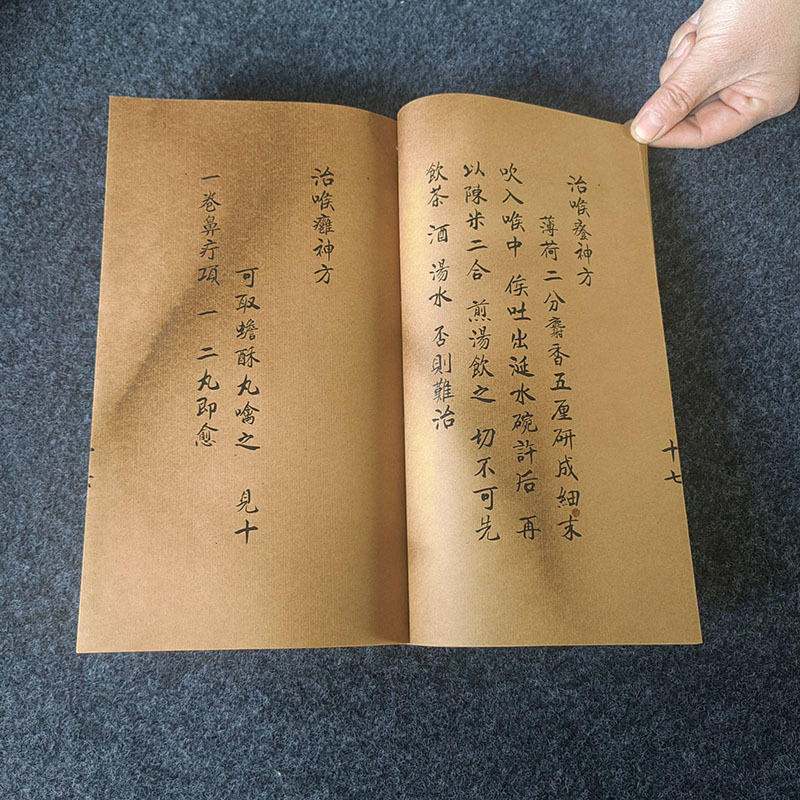 治喉神方
薄荷二分麝香五厘研成細末
吹入喉中 俟吐出涎水碗許后 再
以陳米二合 煎湯飲之 切不可先
飲茶 酒 湯水 否則難治
治喉癰神方
可取蟾酥丸噙之 見十
一卷鼻疔項 一 二丸即愈
十七